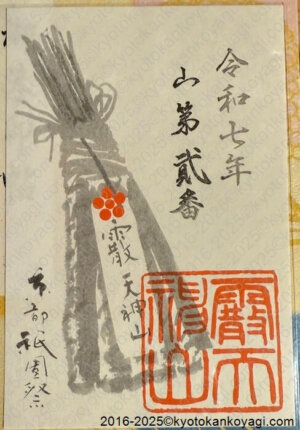 令和七年
山第貳番
霰天神山
京都祇園祭
霰天
神山
2016-2025©kyotokankoyagi.com